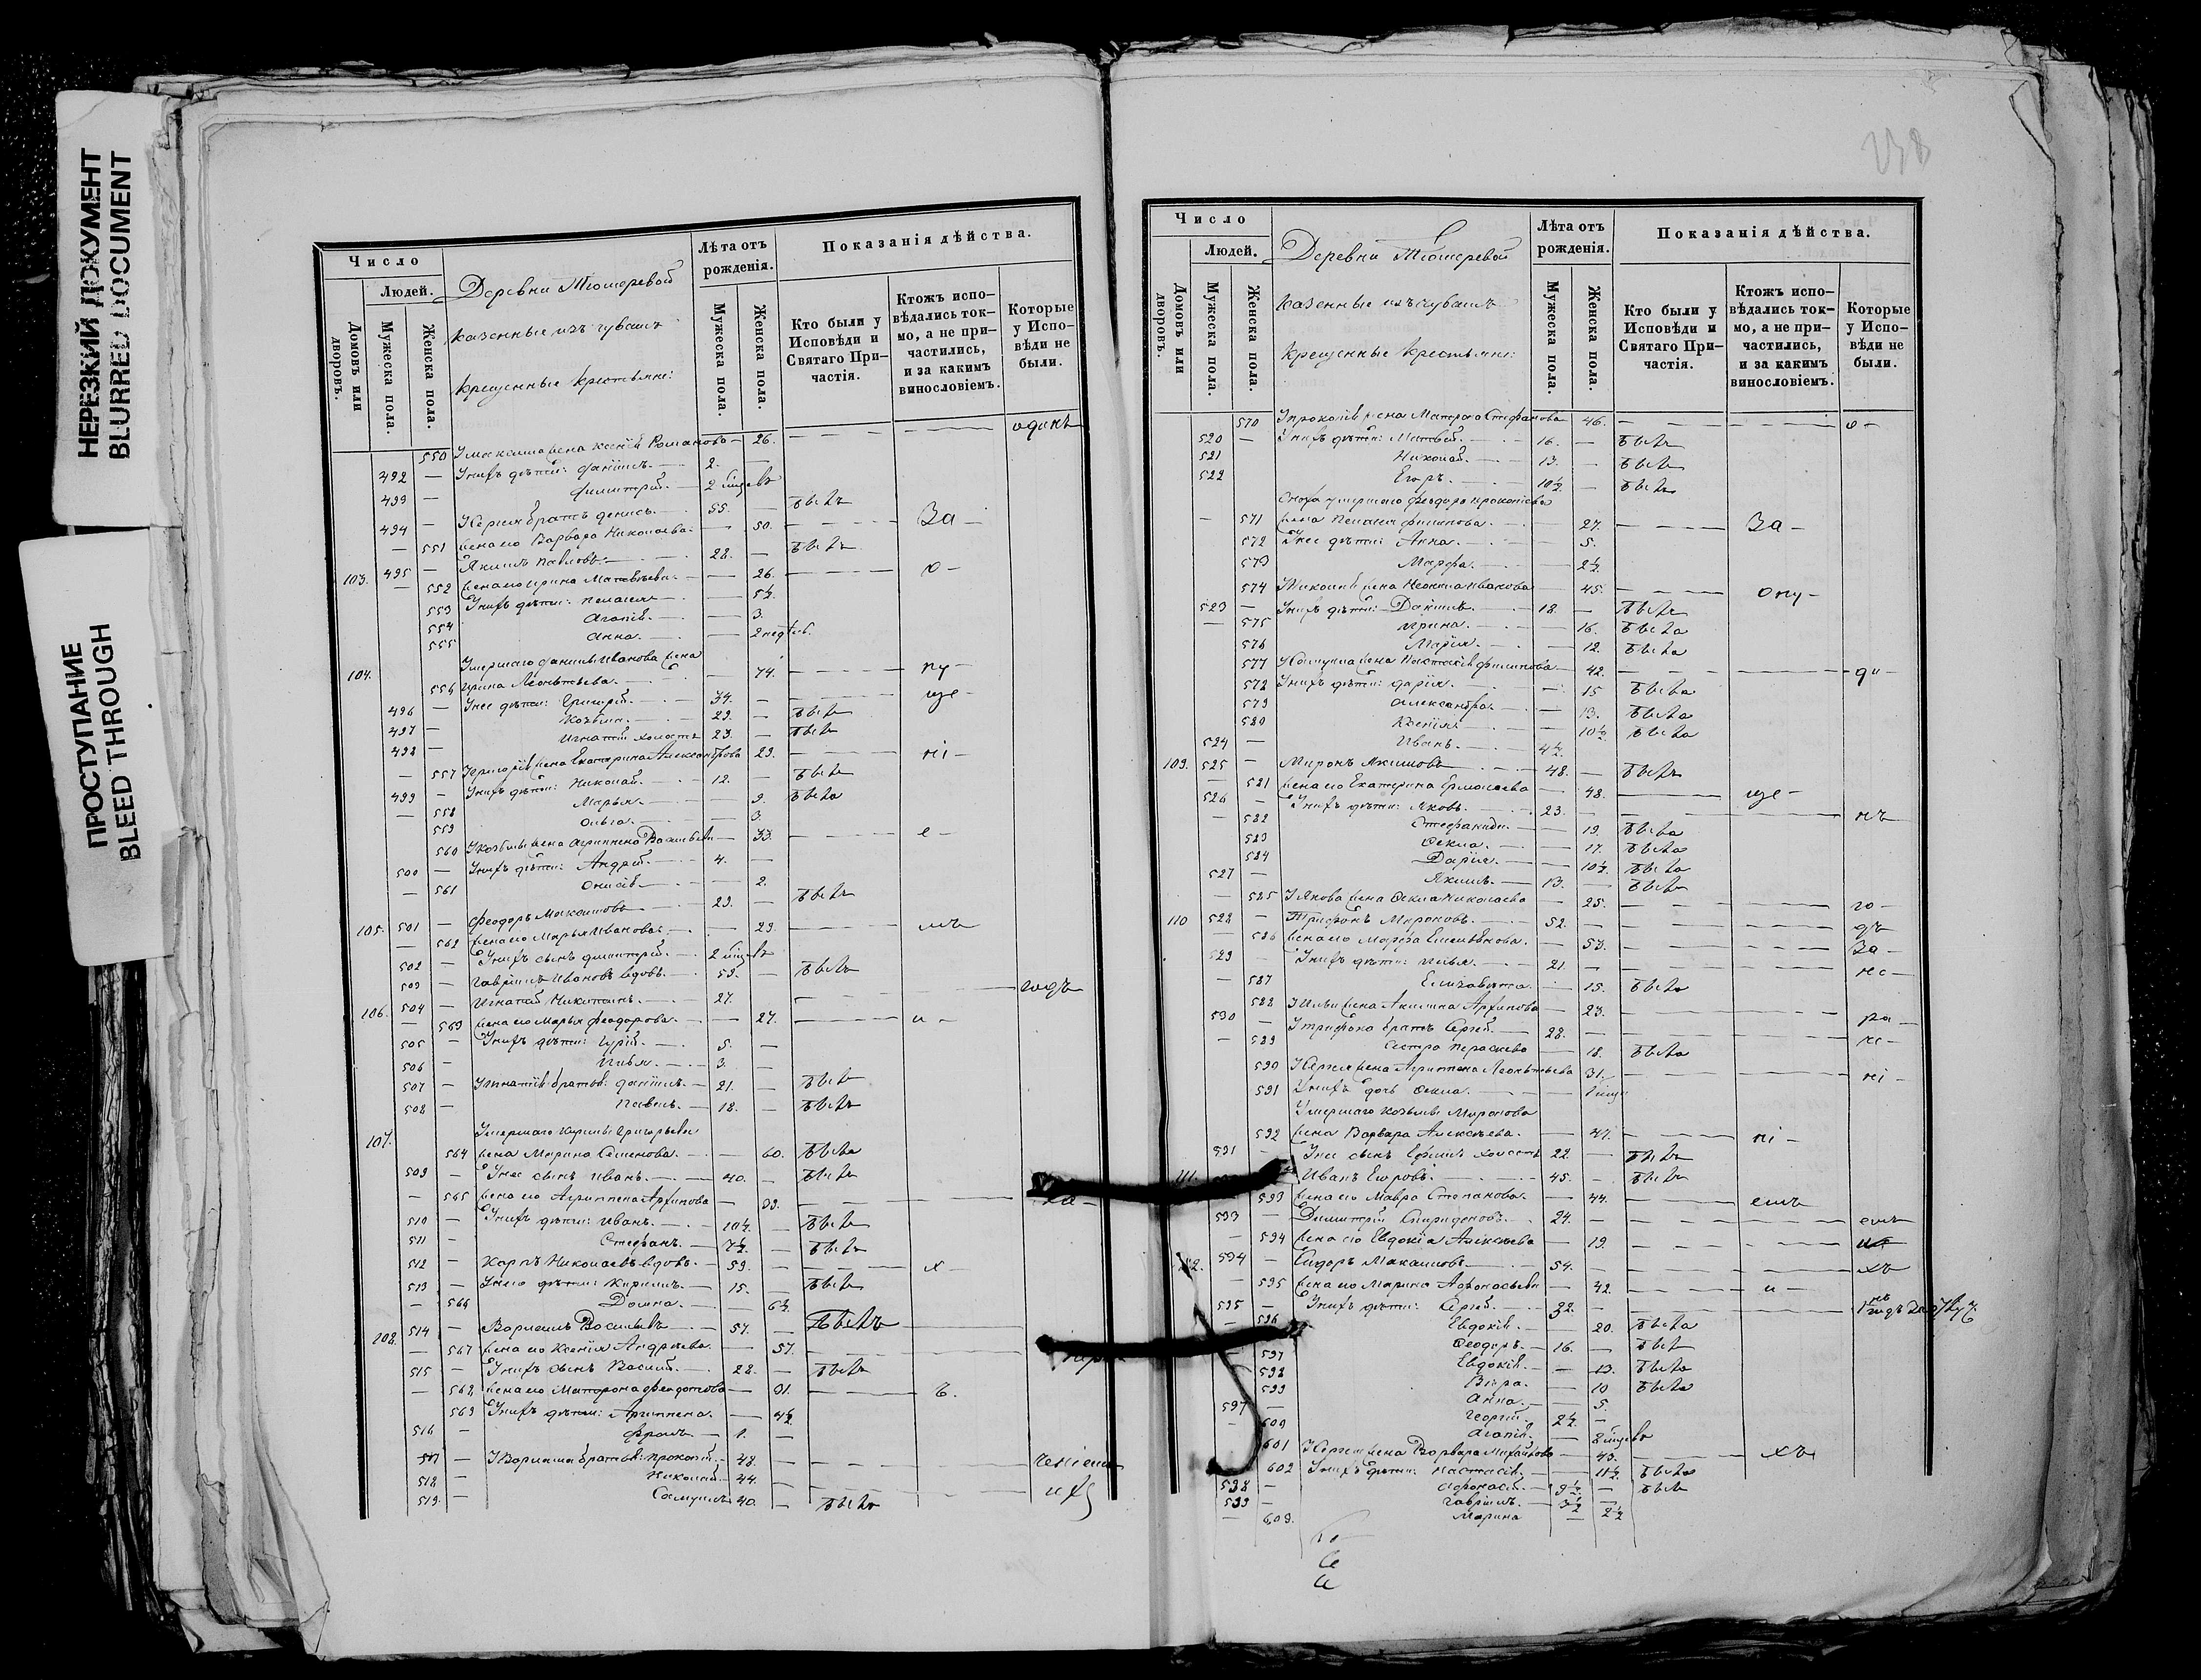 НЕРЕЗКИЙ ДОКУМЕНТ
BLURRED DOCUMENT
ПРОСТУПАНИЕ
BLEED THROUGH
Число
Людей.
Домовъ или дворовъ.
Мужеска пола.
Женска пола.
Деревни Тюмеревой
казенные изъ чувашъ
крещенные крестьяне:
Лѣта отъ рожденія.
Мужеска пола.
Женска пола.
Показанія дѣйства.
Кто были у Исповѣди и Святаго Причастія.
Ктожъ исповѣдались токмо, а не причастились, и за какимъ винословіемъ.
Которые у Исповѣди не были.
550 жена Ксенія Романова 26. одинъ
492 — У нихъ дѣти: Даніилъ 2. —
493 — Димитрій 2 мѣсяцевъ
494 — братъ Денисъ 55. — Былъ
— 551 жена его Варвара Николаева — 50. За-
103. 495 — Якимъ Павловъ 28. — Былъ
— 552 жена его Ирина Матвѣева — 26. о-
553 У нихъ дѣти: Пелагія — 5½.
554 Агапія — 3.
555 Анна — 2 недѣль
104. Умершаго Даніила Иванова жена
556 Ирина Леонтьева — 74. пу-
496 — У нее дѣти: Григорій 34. — ще-
497 — Козьма 29. — Былъ
498 — Игнатій холостъ 23. — Былъ
— 557 У Григорія жена Екатерина Александрова 29. ні-
499 — У нихъ дѣти: Николай 12. — Былъ
— 558 Марья — 9. Была
559 Ольга — 3.
560 У Козьмы жена Агриппена Васильева — 33. е-
500 — У нихъ дѣти: Андрей 4. —
— 561 Онисія — 2.
105. 501 — Феодоръ Максимовъ 29. — Былъ
— 562 жена его Марья Иванова — 29 мъ
502 — У нихъ сынъ Димитрій 2 мѣсяцевъ
503 — Гавріилъ Ивановъ вдовъ 59. — Былъ
106. 504 — Игнатій Никитинъ 27. годъ
— 563 жена его Марья Феодорова — 27. и-
505 — У нихъ дѣти: Гурій 5. —
506 — Илья 3. —
507 — У Игнатія братья: Даніилъ 21. — Былъ
508 — Павелъ 18. — Былъ
107. Умершаго Кирилы Григорьева
564 жена Марина Семенова — 60. Была
509 — У нее сынъ Иванъ 40. — Былъ
— 565 жена его Агриппена Архипова — 39.
510 — У нихъ дѣти: Иванъ 10½. — Былъ
511 — Стефанъ 7½. — Былъ
512 — Карпъ Николаевъ вдовъ 59. — х-
513 — У него дѣти: Кириллъ 15. — Былъ
— 566 Домна — 6½.
108. 514 — Варламъ Васильевъ 57. — Былъ
— 567 жена его Ксенія Андреева — 57.
515 — У нихъ сынъ Василій 28. — Былъ
— 568 жена его Матрона Феодотова — 31.
569 У нихъ дѣти: Агриппена — 4½.
516 — Фролъ 1. —
517 — У Варлама братья: Прокопій 48. — ченіемъ
518 — Николай 44. —
519. — Самуилъ 40. — Былъ
238
Число
Людей.
Домовъ или дворовъ.
Мужеска пола.
Женска пола.
Деревни Тюмеревой
казенные изъ чувашъ
крещенные крестьяне:
Лѣта отъ рожденія.
Мужеска пола.
Женска пола.
Показанія дѣйства.
Кто были у Исповѣди и Святаго Причастія.
Ктожъ исповѣдались токмо, а не причастились, и за какимъ винословіемъ.
Которые у Исповѣди не были.
570 У Прокопія жена Матрона Стефанова 46. о-
520 — У нихъ дѣти: Матвей 16. — Былъ
521 Николай 13. — Былъ
522 Егоръ 10½ — Былъ
Сноха умершаго Феодора Прокопьева
— 571 жена Пелагія Филипова 27. За-
572 У нее дѣти: Анна 5.
573 Марфа 2½.
574 У Николая жена Неонила Иванова 45. опу-
523 — У нихъ дѣти: Даніилъ 18. — Былъ
575 Ирина 16. Была
576 Марія 12. Была
577 У Самуила жена Настасія Филипова 42. ди-
578 У нихъ дѣти: Дарія 15 Была
579 Александра 13. Была
580 Ксенія 10½. Была
524 — Иванъ 4½.
109. 525 — Миронъ Якимовъ 48. — Былъ
581 жена его Екатерина Ермолаева 48. ще-
526 — У нихъ дѣти: Яковъ 23. нъ
— 582 Стефанида 19. Была
583 Фекла 17. Была
584 Дарія 10½. Была
527 — Якимъ 13. — Былъ
585 У Якова жена Фекла Николаева 25. го-
110 528 — Трифонъ Мироновъ 52. дъ
586 жена его Марфа 53. За-
529 — У нихъ дѣти: Илья 21. не-
— 587 Елизавета 15. Была
588 У Ильи жена Акилина Архипова 23. ра-
530 — У Трифона братъ Сергій 28.
— 589 Сестра Параскева 18. Была
590 У Сергія жена Агриппена Леонтьева 31. ні-
591 У нихъ дочь Фекла
Умершаго Козьмы Миронова
592 жена Варвара Алексѣева 47. ні-
531 — У нее сынъ Ефимъ холостъ 22. — Былъ
111. Иванъ Егоровъ 45. — Былъ
593 жена его Мавра Степанова 44. емъ
533 — Димитрій Спиридоновъ 24. емъ
— 594 жена его Евдокія Алексѣева 19.
534 — Сидоръ Максимовъ 54. хъ
— 595 жена его Марина Афонасьева 42. и-
535 — У нихъ дѣти: Сергій 22.
— 596 Евдокія 20. Была
Феодоръ 16. — Былъ
597 Евдокія 13. Была
598 Вѣра 10 Была
599 Анна 5.
537 — Георгій 2½. —
600 Агапія 2 мѣсяцевъ
601 У Сергія жена Варвара Михайлова 43. хъ
602 У нихъ дѣти: Настасія 11½. Была
538 — Афонасій 9½ — Былъ
539 — Гавріилъ 3½ —
— 603. Марина — 2½